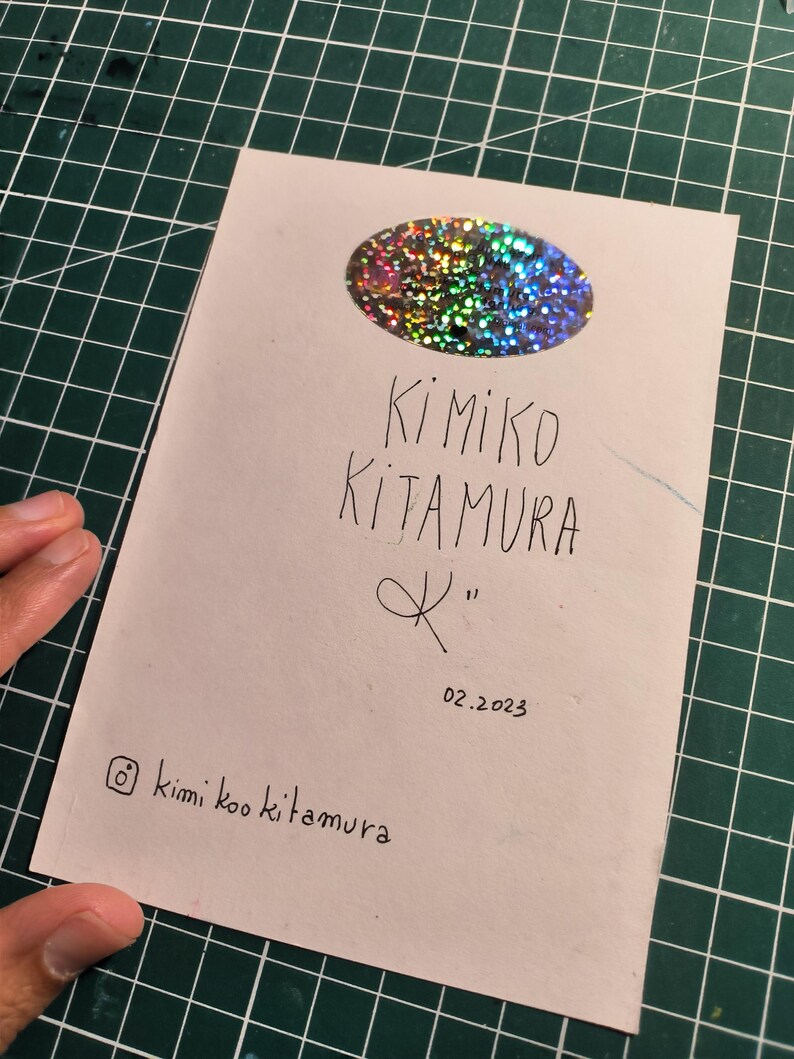 KiMiKO
KiTAMURA
K"
02.2023
kimikookitamura